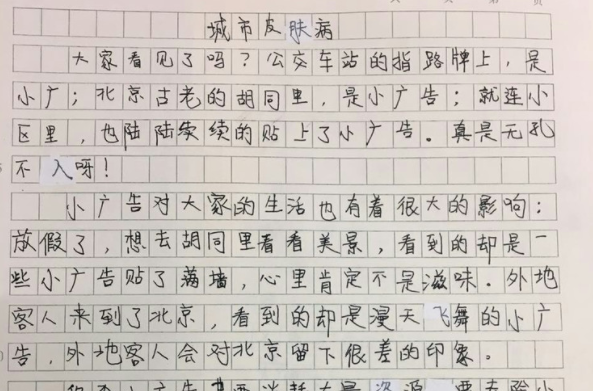 城市皮肤病
大家看见了吗？公交车站的指路牌上，是
小广；北京古老的胡同里，是小广告；就连小
区里，也陆陆续续的贴上了小广告。真是无孔
不入呀！
小广告对大家的生活也有着很大的影响：
放假了，想去胡同里看看美景，看到的却是一
些小广告贴了满墙，心里肯定不是滋味．外地
客人来到了北京，看到的却是漫天飞舞的小广
告，外地客人会对北京留下很差的印象。